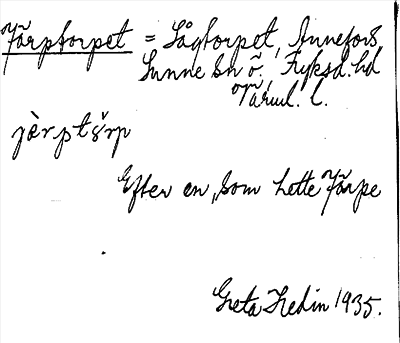 Järptorpet = Lågtorpet, Annefors,
Sunne Sn ö. Fryksd. hd
Värml. l.
jàrptǒrp
Efter en, som hette Järpe
Greta Hedin 1935.